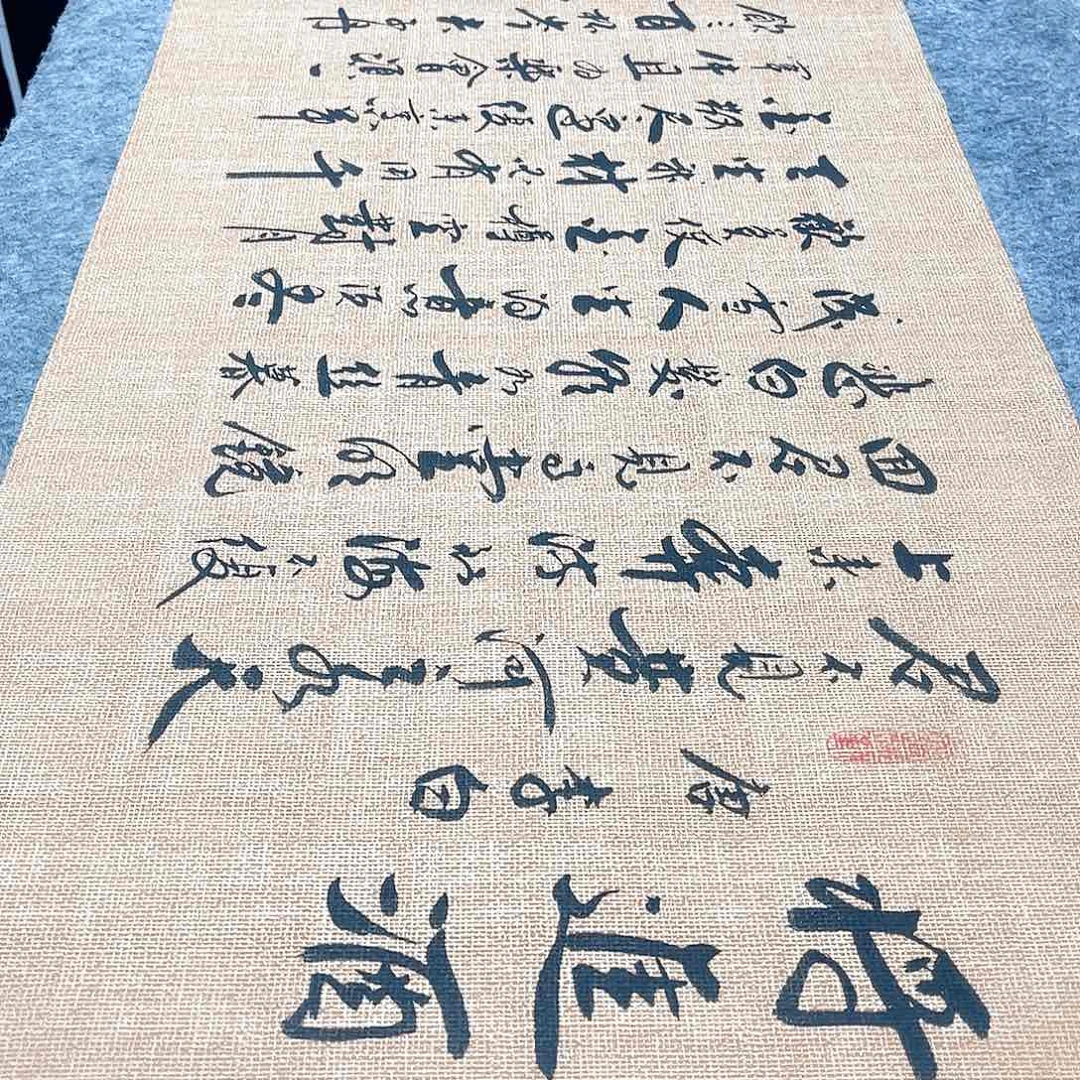 将進酒
唐李白
君不見黄河之水天
上来奔流到海不復
回君不見高堂明鏡
悲白髮朝如青丝暮
成雪人生得意須盡
歡莫使金樽空對月
天生我材必有用千
金散盡還復来烹羊
宰牛且为樂會須一
飲三百杯岑夫子丹